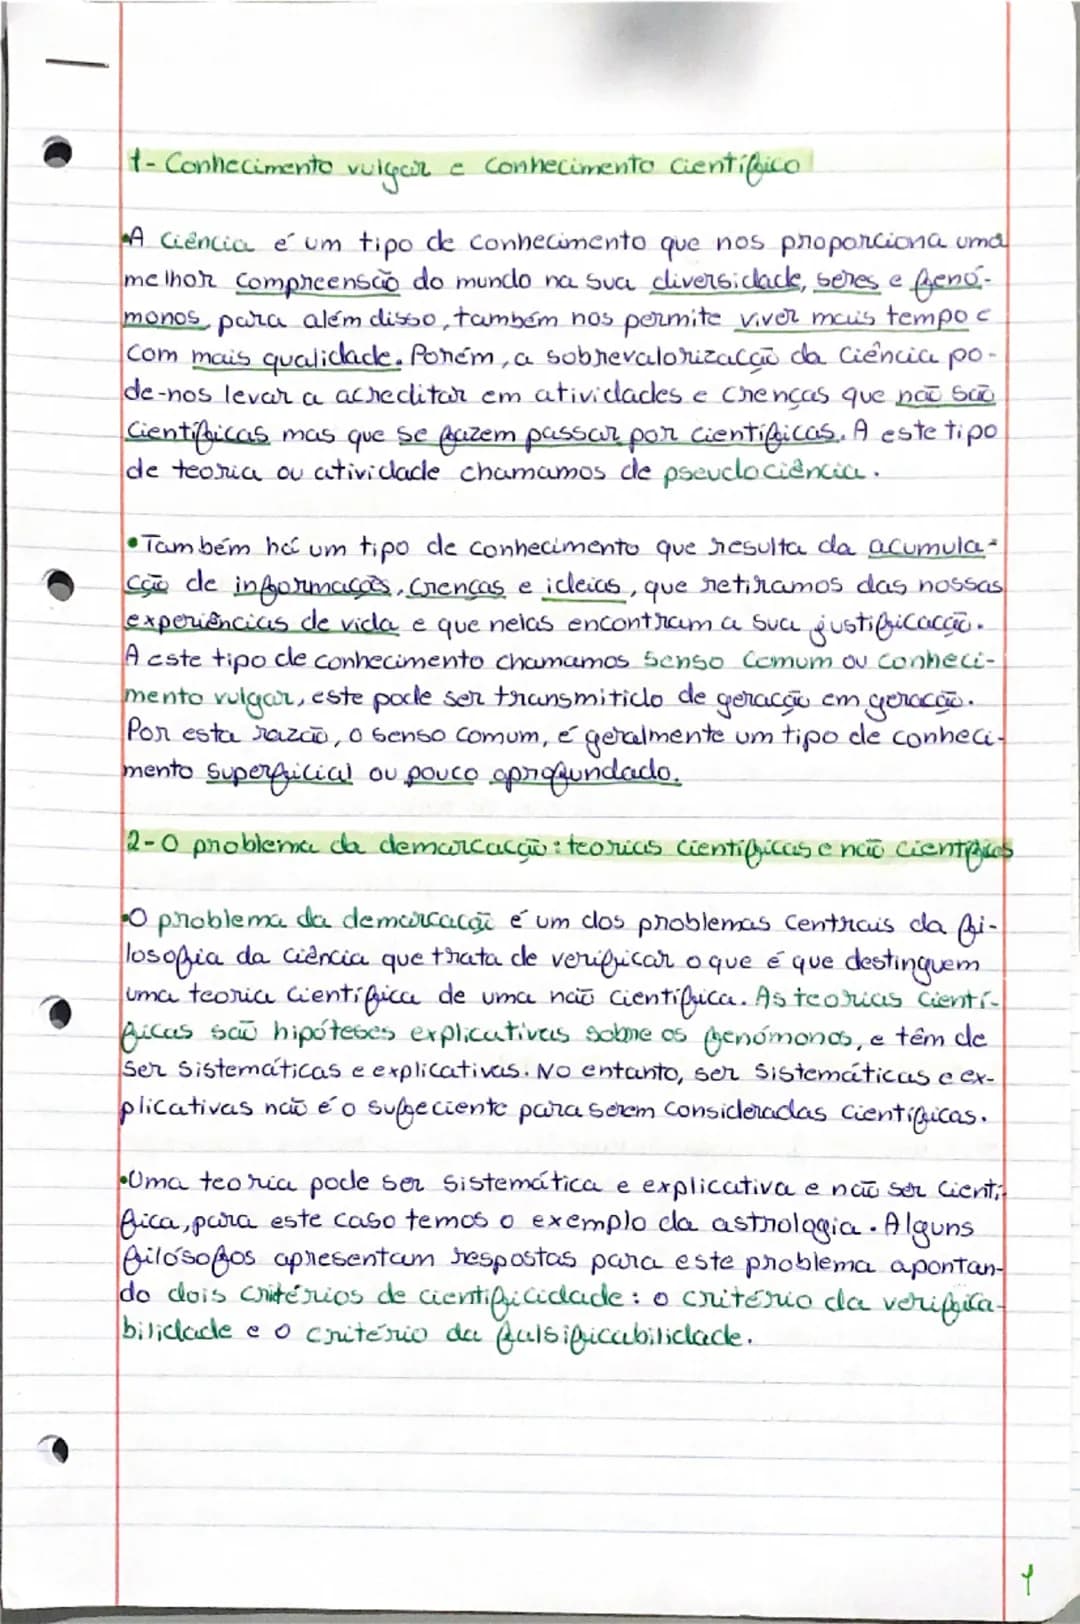 1- Conhecimento vulgar e conhecimento científico
•A ciência é um tipo de conhecimento que nos proporciona uma
melhor compreensão do mundo na sua diversidade, seres e fenó-
monos, para além disso, também nos permite viver mais tempo e
com mais qualidade. Porém, a sobrevalorizacção da ciência po-
de-nos levar a acreditar em atividades e crenças que não são
científicas mas que se fazem passar por científicas. A este tipo
de teoria ou atividade chamamos de pseudociência.
•Também há um tipo de conhecimento que resulta da acumula-
cção de informações, crenças e ideias, que retiramos das nossas
experiências de vida e que nelas encontram a sua justificacção.
A este tipo de conhecimento chamamos senso comum ou conheci-
mento vulgar, este pode ser transmitido de geracção em geracção.
Por esta razão, o senso comum, é geralmente um tipo de conheci-
mento superficial ou pouco aprofundado.
2-O problema da demarcacção: teorias científicas e não científicas
•O problema da demarcação é um dos problemas centrais da fi-
losofia da ciência que trata de verificar o que é que destinguem
uma teoria científica de uma não científica. As teorias cientí-
ficas são hipóteses explicativas sobre os fenómonos, e têm de
ser sistemáticas e explicativas. No entanto, ser sistemáticas e ex-
plicativas não é o sufeciente para serem consideradas científicas.
•Uma teoria pode ser sistemática e explicativa e não ser cientí-
fica, para este caso temos o exemplo da astrologia. Alguns
filósofos apresentam respostas para este problema apontan-
do dois critérios de cientificidade: o critério da verifica-
bilidade e o critério da falsificabilidade.
1